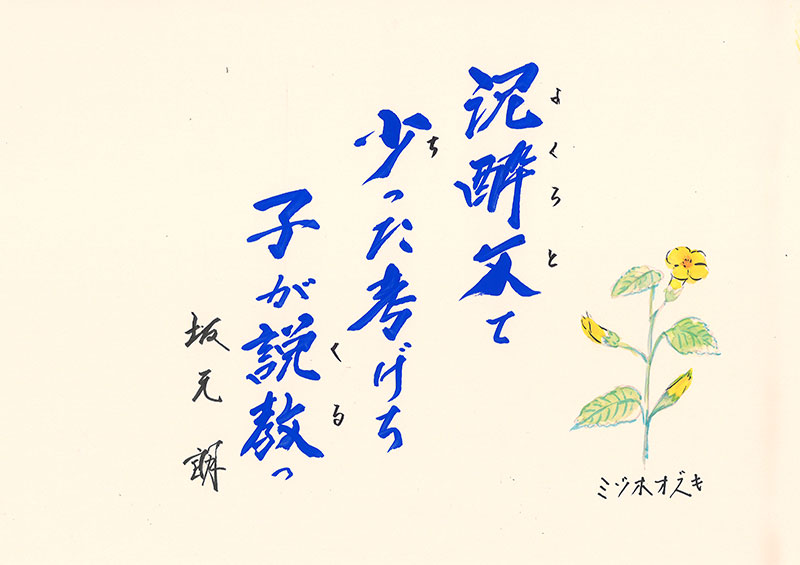 泥酔父て
よくろと
少った考げち
ち
子が説教っ
くる
坂元
ミゾホオズキ